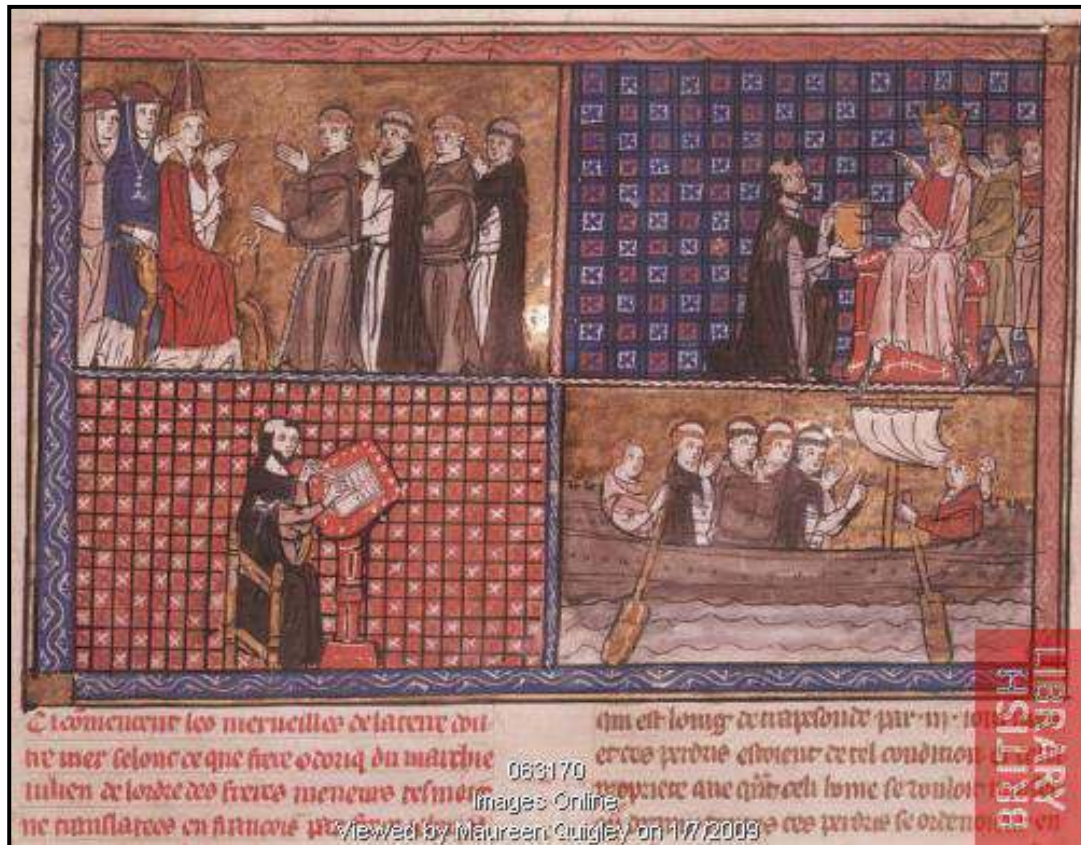 Ci co͂mencent les merueilles de la terre dou
tre mer selonc ce que frere odoriq du marchie
iulien de lordre des freres meneurs tesmoi
ne translatees en francois
qui est loing de trapesonde par .iij. iou
et ces perdris estoient de tel condition
propriete que
ces perdris se ordenoient en
063170
Images Online
Viewed by Maureen Quigley on 1/7/2009
BRITISH
LIBRARY